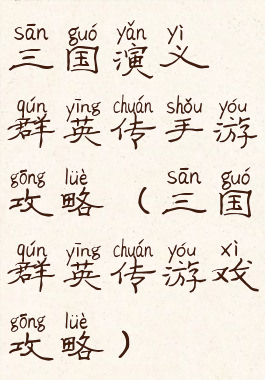 sān guó yǎn yì
三国演义
qún yīng chuán shǒu yóu
群英传手游
gōng lüè sān guó
攻略（三国
qún yīng chuán yóu xì
群英传游戏
gōng lüè
攻略）